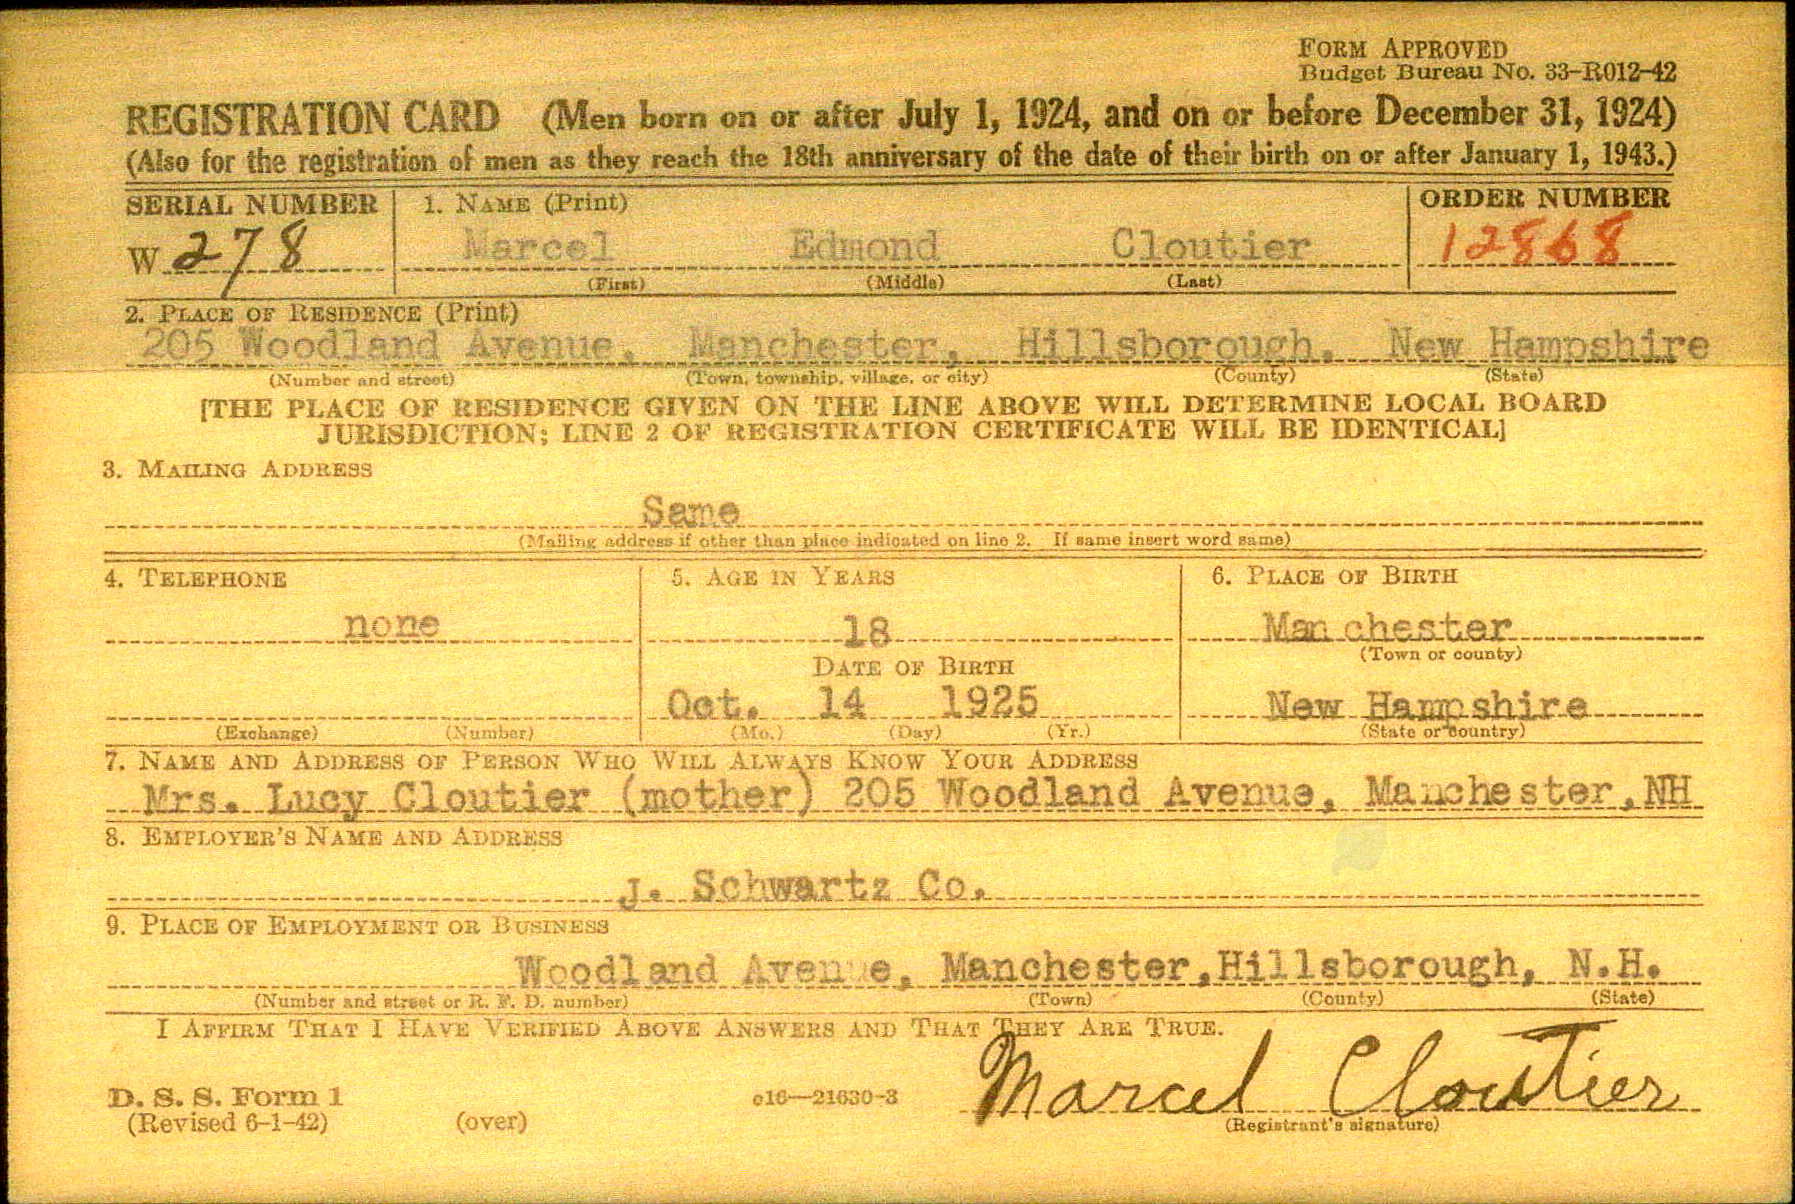 FORM APPROVED
Budget Bureau No. 33-R012-42
REGISTRATION CARD (Men born on or after July 1, 1924, and on or before December 31, 1924)
(Also for the registration of men as they reach the 18th anniversary of the date of their birth on or after January 1, 1943.)
SERIAL NUMBER 1. NAME (Print) ORDER NUMBER
W 278 Marcel Edmond Cloutier 12868
(First) (Middle) (Last)
2. PLACE OF RESIDENCE (Print)
205 Woodland Avenue, Manchester, Hillsborough, New Hampshire
(Number and street) (Town, township, village, or city) (County) (State)
[THE PLACE OF RESIDENCE GIVEN ON THE LINE ABOVE WILL DETERMINE LOCAL BOARD
JURISDICTION; LINE 2 OF REGISTRATION CERTIFICATE WILL BE IDENTICAL]
3. MAILING ADDRESS
Same
(Mailing address if other than place indicated on line 2. If same insert word same)
4. TELEPHONE 5. AGE IN YEARS 6. PLACE OF BIRTH
none 18 Man chester
(Town or county)
DATE OF BIRTH
Oct. 14 1925 New Hampshire
(Exchange) (Number) (Mo.) (Day) (Yr.) (State or country)
7. NAME AND ADDRESS OF PERSON WHO WILL ALWAYS KNOW YOUR ADDRESS
Mrs. Lucy Cloutier (mother) 205 Woodland Avenue, Manchester, NH
8. EMPLOYER'S NAME AND ADDRESS
J. Schwartz Co.
9. PLACE OF EMPLOYMENT OR BUSINESS
Woodland Avenue, Manchester, Hillsborough, N.H.
(Number and street or R. F. D. number) (Town) (County) (State)
I AFFIRM THAT I HAVE VERIFIED ABOVE ANSWERS AND THAT THEY ARE TRUE.
Marcel Cloutier
D. S. S. Form 1 c16—21630-3
(Revised 6-1-42) (over) (Registrant's signature)